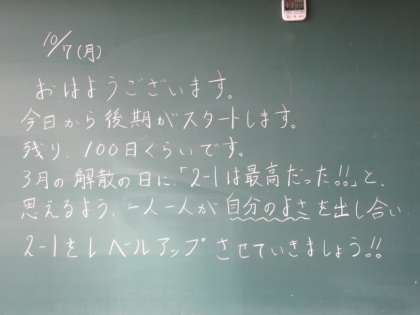 10/7(月)
おはようございます。
今日から後期がスタートします。
残り、100日くらいです。
3月の解散の日に「2-1は最高だった!!」と、
思えるよう、一人一人が自分のよさを出し合い
2-1をレベルアップさせていきましょう!!